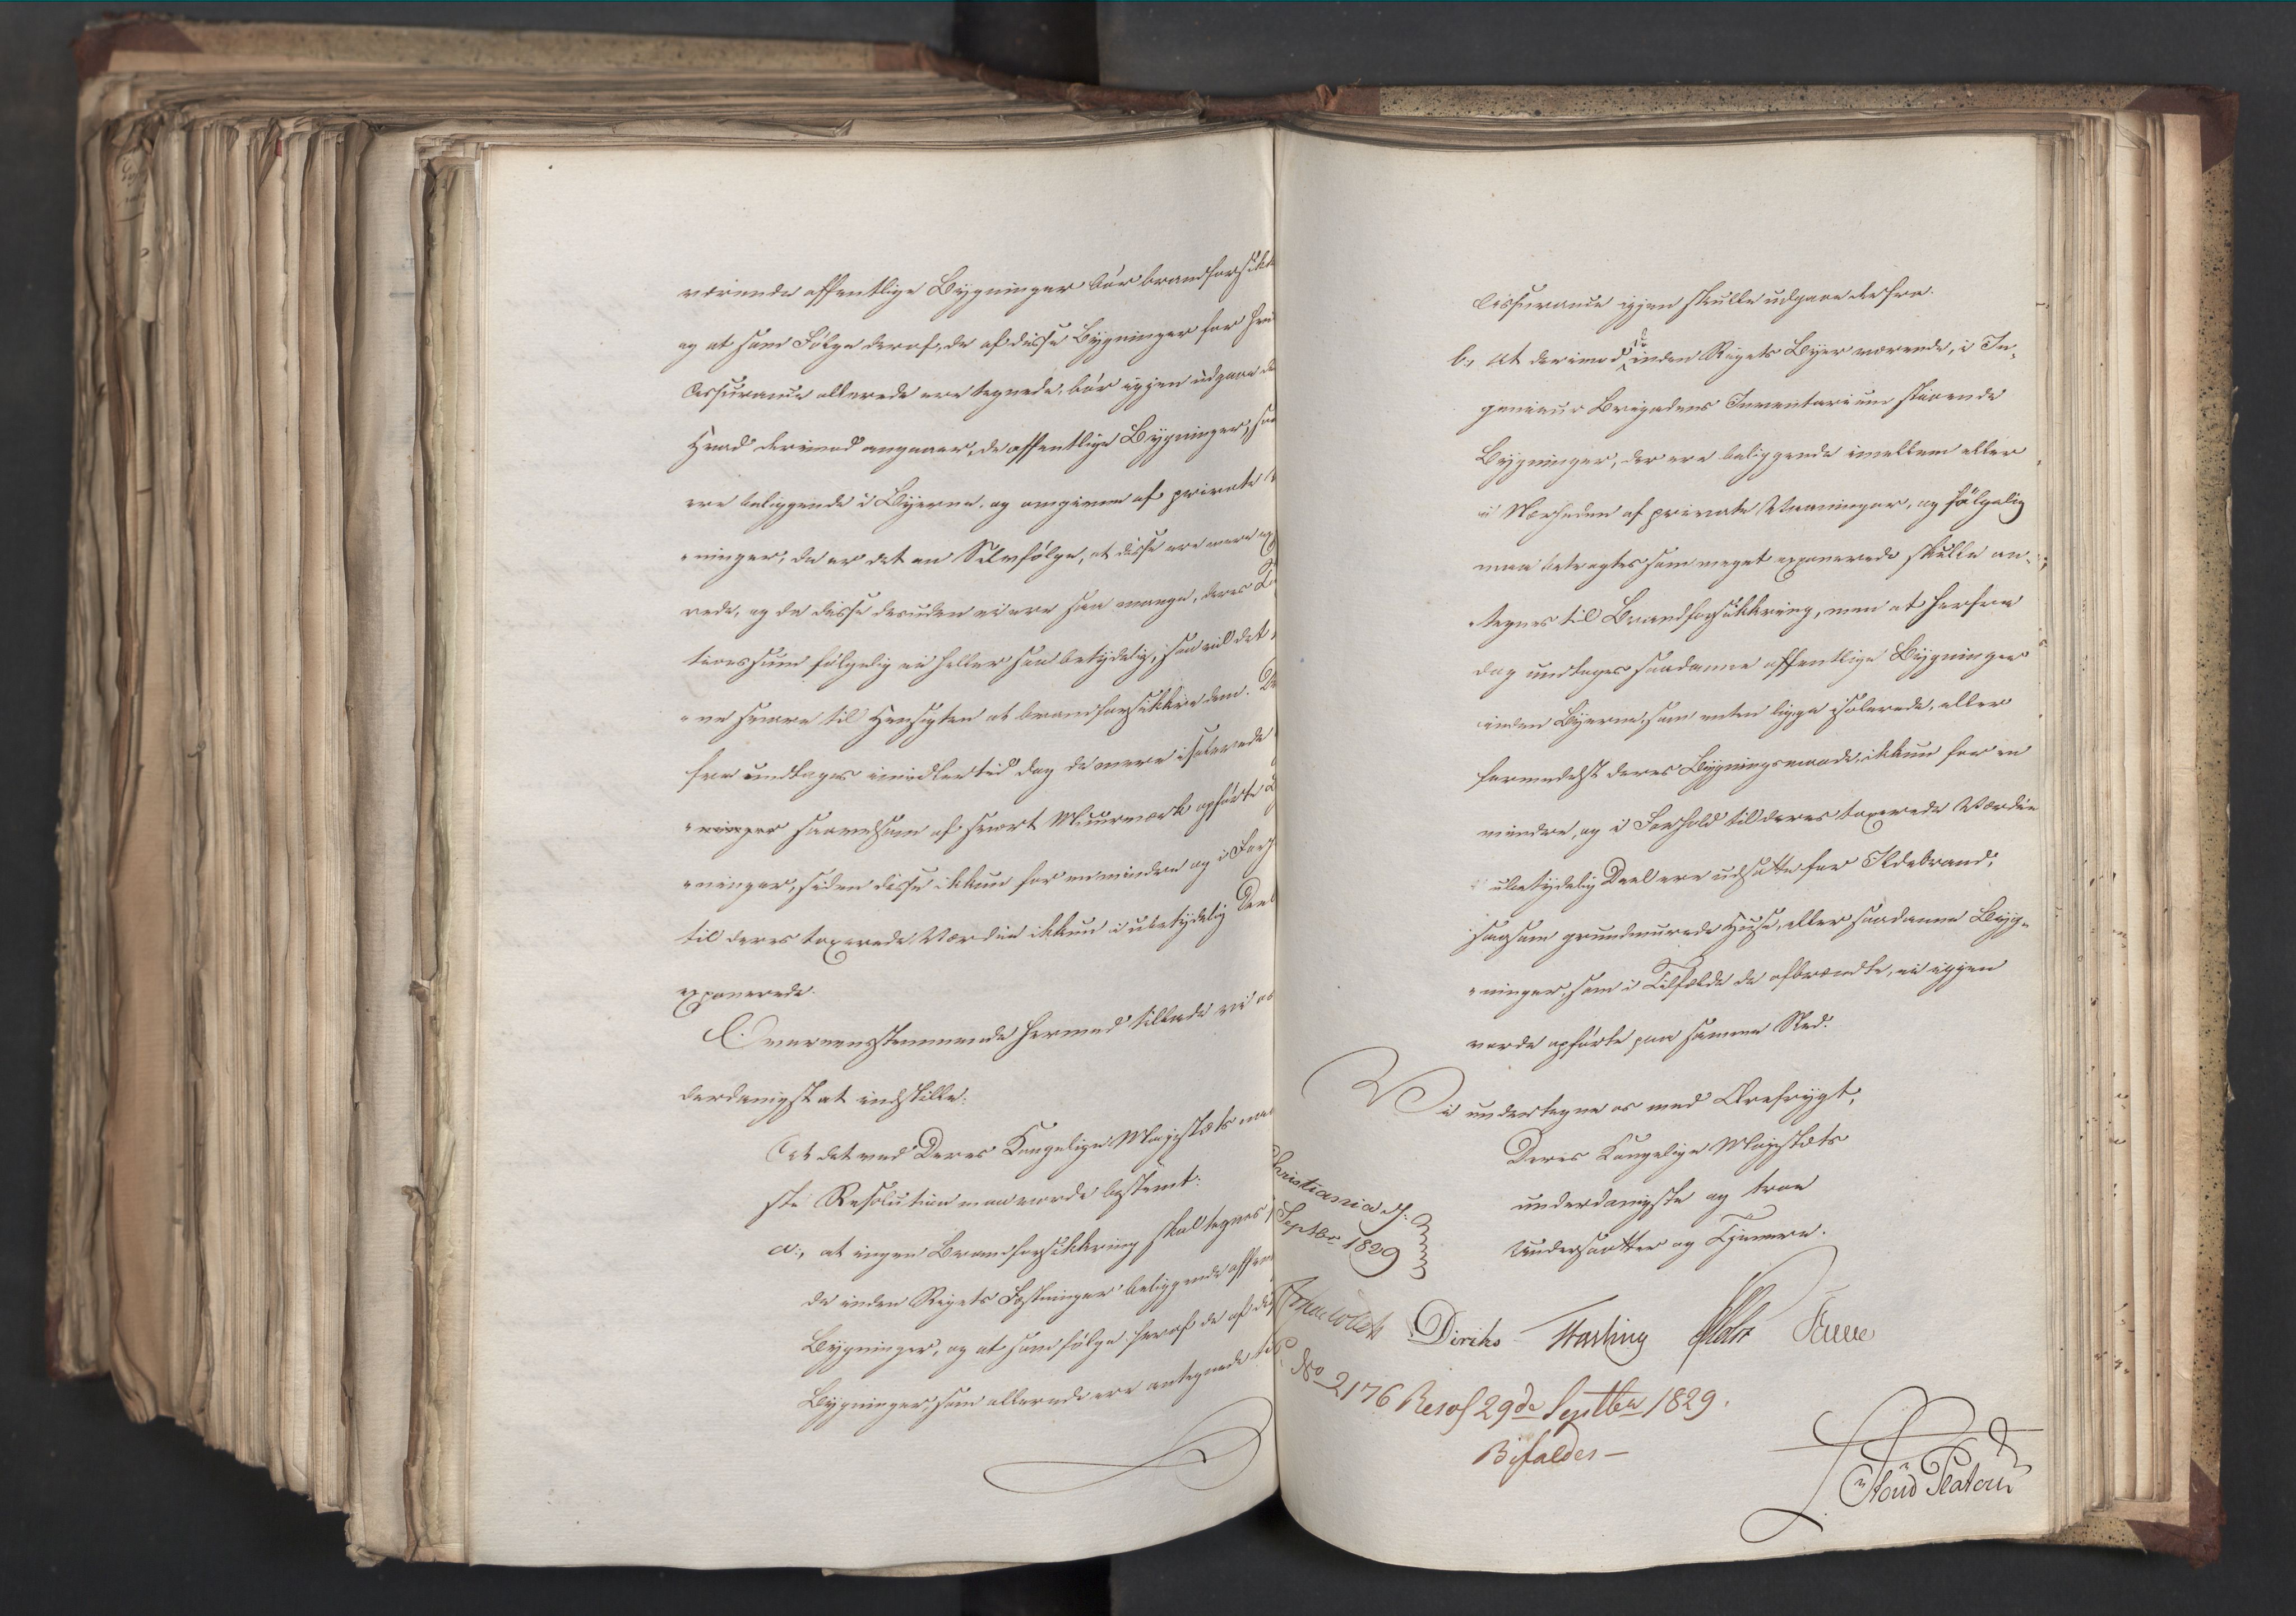 værende offentlige Bygninger bör brandforsikk
og at som Fölge deraf, de af disse Bygninger for hvi
Assurance allerede ere tegnede, bör igjen udgaae de
Hvad derimod angaaer, de offentlige Bygninger, som
ere beliggende i Byerne, og omgivne af private B
"ninger, da er det en Selvfölge, at disse ere mere exp
rede, og da disse desuden ei ere saa mange, deres T
tionssum fölgelig ei heller saa betydelig, saa vil det
"ve svare til Hensigten at brandforsikkre dem. Der
fra undtages imidlertid dog de mere isolerede
"ninger saavelsom af svært Muurværk opförte B
"ninger, siden disse ikkun for en mindre og i Forh
til deres taxerede Værdie ikkun i ubetydelig Deel
exponerede.
Overeensstemmende hermed tillade vi os
derdanigst at indstille:
At det ved Deres Kongelige Majestæts naa
ste Resolution maa vorde bestemt:
a., at ingen Brandforsikkring skal tegnes
de inden Rigets Fæstninger beliggende offen
Bygninger, og at som fölge heraf de af dis
Bygninger, som allerede ere antegnede til
Assurance igjen skulle udgaae derfra.
b., At derimod de inden Rigets Byer værende, i In-
genieur Brigadens Inventarium staaende
Bygninger, der ere beliggende imellem eller
i Nærheden af private Vaaninger, og fölgelig
maa betragtes som meget exponerede skulle an-
tegnes til Brandforsikkring, men at herfra
dog undtages saadanne offentlige Bygninger
inden Byerne, som enten ligge isolerede, eller
formedelst deres Bygningsmaade, ikkun for en
mindre, og i Forhold til deres taxerede Værdie
ubetydelig Deel ere udsatte for Ildebrand,
saasom grundmurede Huse, eller saadanne Byg-
"ninger, som i Tilfælde de afbrændte, ei igjen
vorde opförte paa samme Sted.
Vi undertegne os med Ærefrygt,
Deres Kongelige Majestæts
underdanigste og troe
Undersaatter og Tjenere.
Christiania d.
Septbr 1829
Jonas Collett Diriks Fasting Holst
No 2176 Resol 29de Septbr 1829.
Bifaldes -